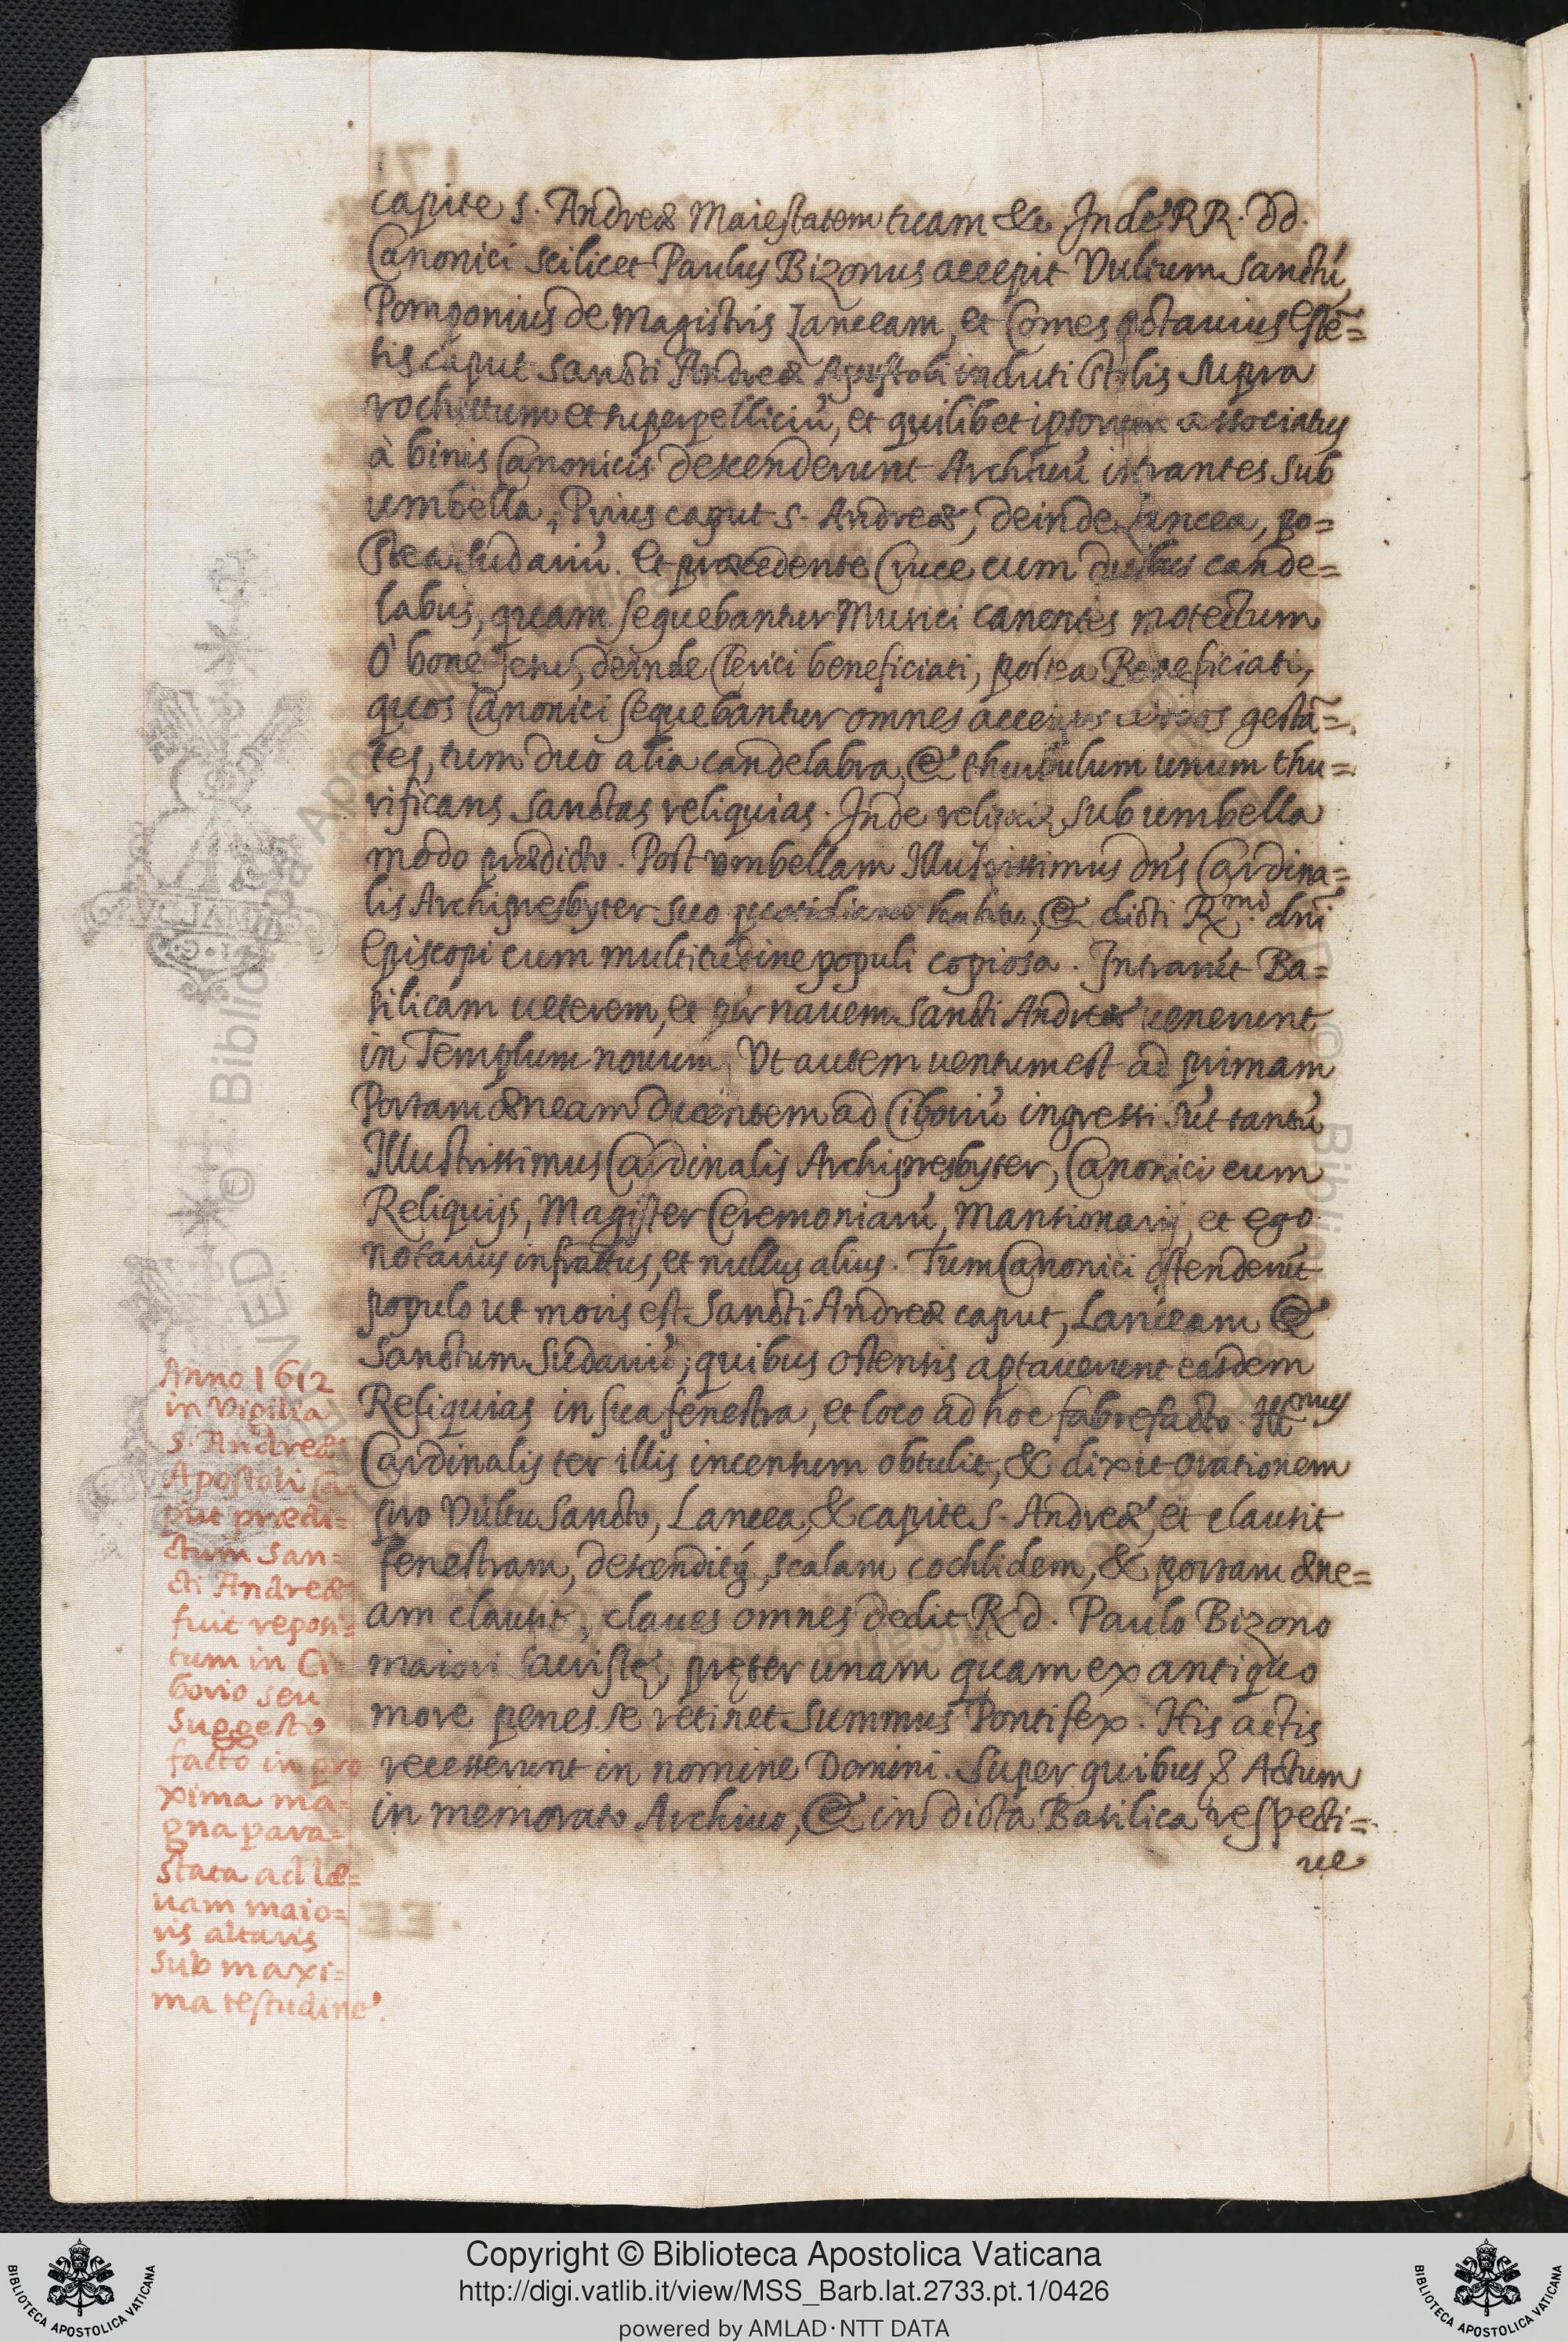 capite S. Andreæ Maiestatem tuam &c. Inde RR. DD.
Canonici scilicet Paulus Bizonus accepit Vultum Sanctũ,
Pomponius de Magistris Lanceam, et Comes Octavius Estẽ=
sis caput Sancti Andreæ Apostoli induti stolis supra
rochettum et superpelliciũ, et quilibet ipsorum associatus
à binis Canonicis descenderunt Archiuũ intrantes sub
umbella, Prius caput S. Andreæ, deinde Lancea, po=
stea Sudariũ. Et præcedente Cruce cum duobus cande=
labris, quam sequebantur Musici canentes motectum
O bone Jesu, deinde Clerici beneficiati, postea Beneficiati,
quos Canonici sequebantur omnes accensos cereos gestã=
tes, tum duo alia candelabra, & thuribulum unum thu=
rificans sanctas reliquias. Inde reliquiæ sub umbella
modo prædicto. Post umbellam Illustrissimus dñs Cardina=
lis Archipresbyter suo quotidiano habitu, & dicti R.mi dñi
Episcopi cum multitudine populi copiosa. Intrarũt Ba=
silicam ueterem, et per nauem Sancti Andreæ uenerunt
in Templum nouum, Vt autem uentum est ad primam
Portam æneam ducentem ad Ciboriũ ingressi sũt tantũ
Illustrissimus Cardinalis Archipresbyter, Canonici cum
Reliquijs, Magister Ceremoniarũ, Mansionarij, et ego
notarius infrattus, et nullus alius. Tum Canonici ostenderũt
populo ut moris est Sancti Andreæ caput, Lanceam &
Sanctum Sudariũ; quibus ostensis aptauerunt easdem
Reliquias in sua fenestra, et loco ad hoc fabrefacto. Ill.mus
Cardinalis ter illis incensum obtulit, & dixit orationem
pro Vultu Sancto, Lancea, & capite S. Andreæ, et clausit
fenestram, descenditq́, scalam cochlidem, & portam æne=
am clausit, claues omnes dedit R.d. Paulo Bizono
maiori Sacristę, pręter unam quam ex antiquo
more penes se retinet Summus Pontifex. His actis
recesserunt in nomine Domini. Super quibus & Actum
in memorato Archiuo, & in dicta Basilica respecti=
ue
Anno 1612
in Vigilia
S. Andreæ
Apostoli Ca
put prædi=
ctum San=
cti Andreæ
fuit reposi=
tum in Ci
borio seu
Suggesto
facto in pro
xima ma=
gna para=
stata ad læ=
uam maio=
ris altaris
sub maxi=
ma testudine.
Copyright © Biblioteca Apostolica Vaticana
http://digi.vatlib.it/view/MSS_Barb.lat.2733.pt.1/0426
powered by AMLAD·NTT DATA
BIBLIOTECA APOSTOLICA VATICANA
BIBLIOTECA APOSTOLICA VATICANA